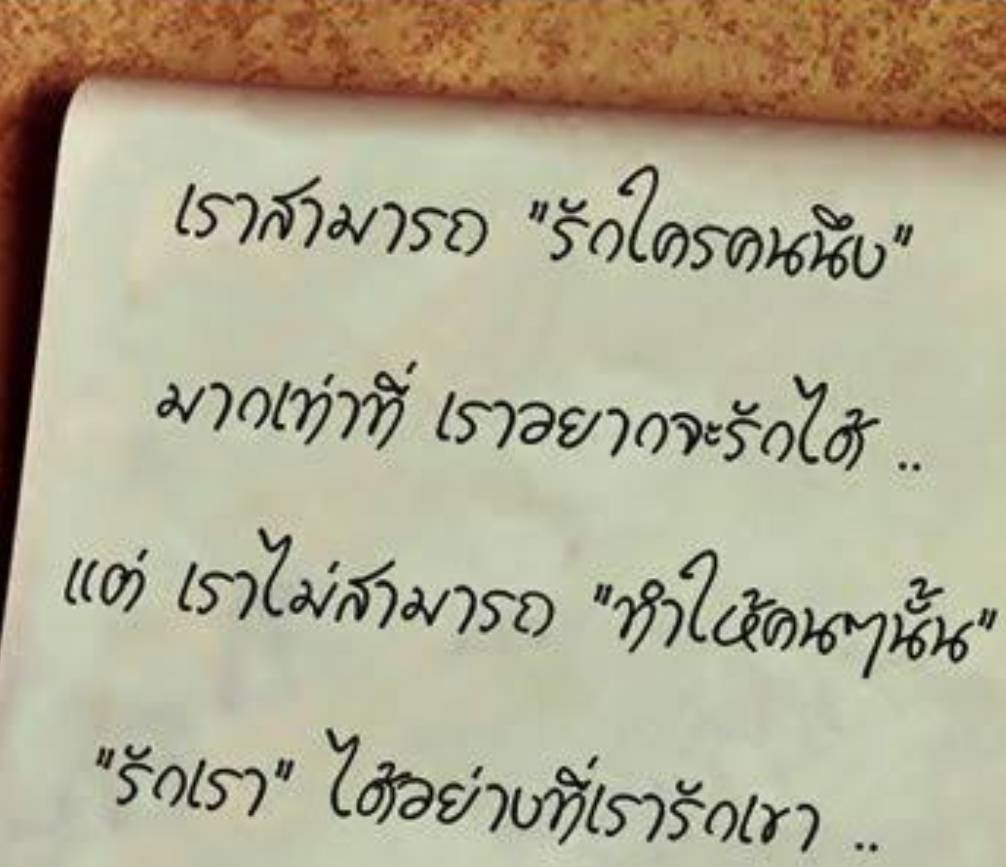 เราสามารถ "รักใครคนนึง"
มากเท่าที่ เราอยากจะรักได้ ..
แต่ เราไม่สามารถ "ทำให้คนๆนั้น"
"รักเรา" ได้อย่างที่เรารักเขา ..